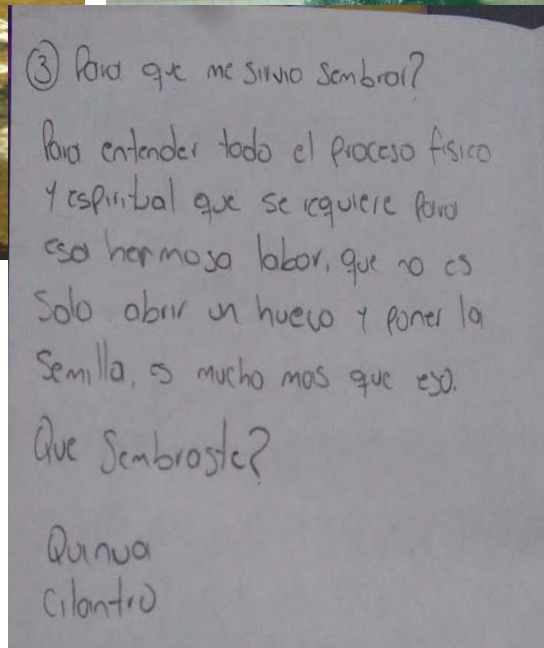 ③ Para que me sirvio sembrar?
Para entender todo el proceso fisico
y espiritual que se requiere para
esa hermosa labor, que no es
solo abrir un hueco y poner la
semilla, es mucho mas que eso.
Que Sembraste?
Quinua
Cilantro